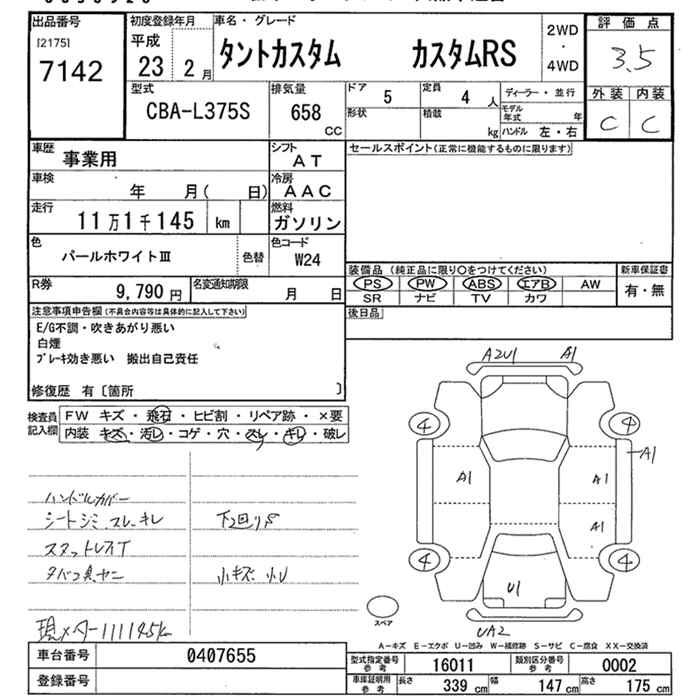 出品番号
[2175]
7142
初度登録年月
平成
23 2月
車名・グレード
タントカスタム カスタムRS
2WD
・
4WD
評価点
3.5
外装 内装
C C
型式
CBA-L375S
排気量
658
CC
ドア
5
定員
4 人
形状
積載
kg
ディーラー・並行
モデル年式 年
ハンドル 左・右
車歴
事業用
シフト
AT
車検
年 月( 日)
冷房
AAC
走行
11万1千145 km
燃料
ガソリン
色
パールホワイトⅢ
色替
色コード
W24
R券
9,790円
名変通知期限
月 日
セールスポイント(正常に機能するものに限ります)
装備品 (純正品に限り○をつけてください)
PS PW ABS エアB AW
SR ナビ TV カワ
新車保証書
有・無
後日品
注意事項申告欄(不具合内容等は具体的に記入して下さい)
E/G不調・吹きあがり悪い
白煙
ブレーキ効き悪い 搬出自己責任
修復歴 有〔箇所 〕
検査員記入欄
FW キズ・飛石・ヒビ割・リペア跡・×要
内装 キズ・汚レ・コゲ・穴・スレ・キレ・破レ
ハンドルカバー
シートシミ、スレ、キレ
下回りS
スタットレスT
タバコ臭ヤニ
小キズ 小U
現メーター111145k
A2U1 A1
4 4
A1
A1 A1
A1
4 4
U1
スペア
UA2
A-キズ E-エクボ U-凹み W-補修跡 S-サビ C-腐食 XX-交換済
車台番号
0407655
登録番号
型式指定番号 参考
16011
類別区分番号 参考
0002
車庫証明用 参考
長さ 339 cm 幅 147 cm 高さ 175 cm